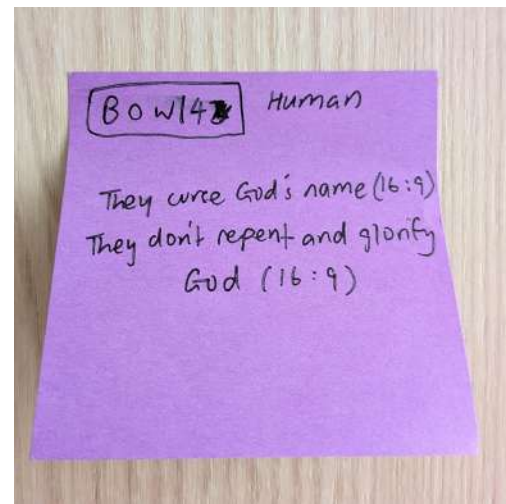 Bowl4 Human
They curce God's name (16:9)
They don't repent and glorify
God (16:9)